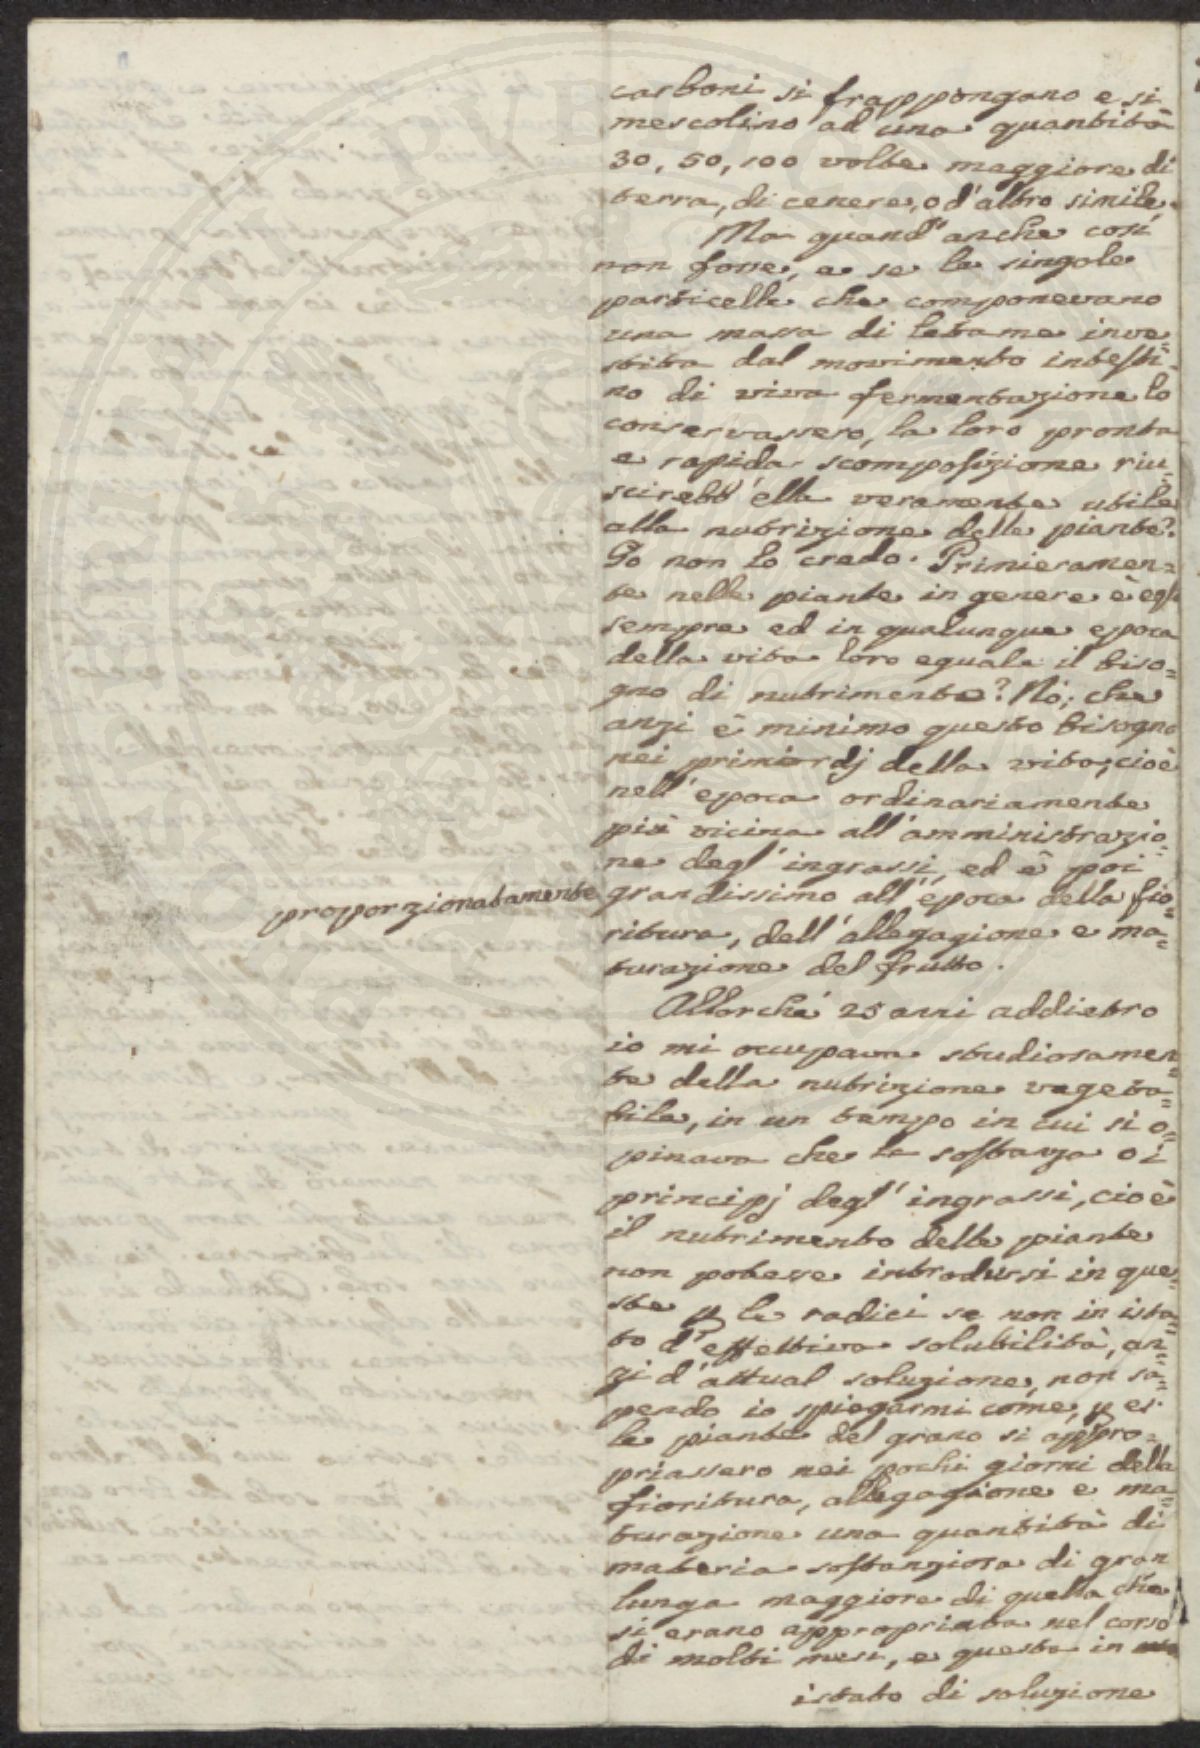 carboni si frappongano e si
mescolino ad una quantità
30, 50, 100 volte maggiore di
terra, di cenere, o d'altro simile.
Ma quand'anche così
non fosse, e se le singole
particelle che componevano
una massa di letame inve=
stita dal movimento intesti=
no di viva fermentazione lo
conservassero, la loro pronta
e rapida scomposizione riu=
scirebb'ella veramente utile
alla nutrizione delle piante?
Io non lo credo. Primieramen=
te nelle piante in genere è egli
sempre ed in qualunque epoca
della vita loro eguale il biso=
gno di nutrimento? Nò; che
anzi è minimo questo bisogno
nei primordj della vita, cioè
nell'epoca ordinariamente
più vicina all'amministrazio=
ne degl'ingrassi, ed è poi
proporzionatamente
grandissimo all'epoca della fio=
ritura, dell'allegagione e ma=
turazione del frutto.
Allorché 25 anni addietro
io mi occupava studiosamen=
te della nutrizione vegeta=
bile, in un tempo in cui si o=
pinava che le sostanze o i
principj degl'ingrassi, cioè
il nutrimento delle piante
non potesse introdursi in que=
ste p le radici se non in ista=
to d'effettiva solubilità, an=
zi d'attual soluzione, non sa=
pendo io spiegarmi come, p es.
le piante del grano si appro=
priassero nei pochi giorni della
fioritura, allegagione e ma=
turazione una quantità di
materia sostanziosa di gran
lunga maggiore di quella che
si erano appropriata nel corso
di molti mesi, e questa in
istato di soluzione